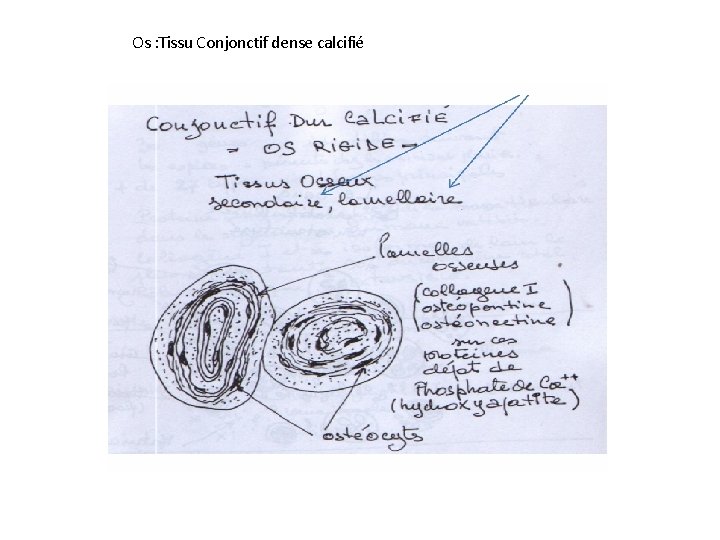 Os : Tissu Conjonctif dense calcifié
Conjonctif Dur CALCIFIÉ
= OS RIGIDE =
Tissus Osseux
secondaire, lamellaire
lamelles
osseuses
(collagene I
ostéopontine
ostéonectine)
sur ces
protéines
dépat de
Phosphate de Ca++
(hydroxyapatite)
ostéocyts